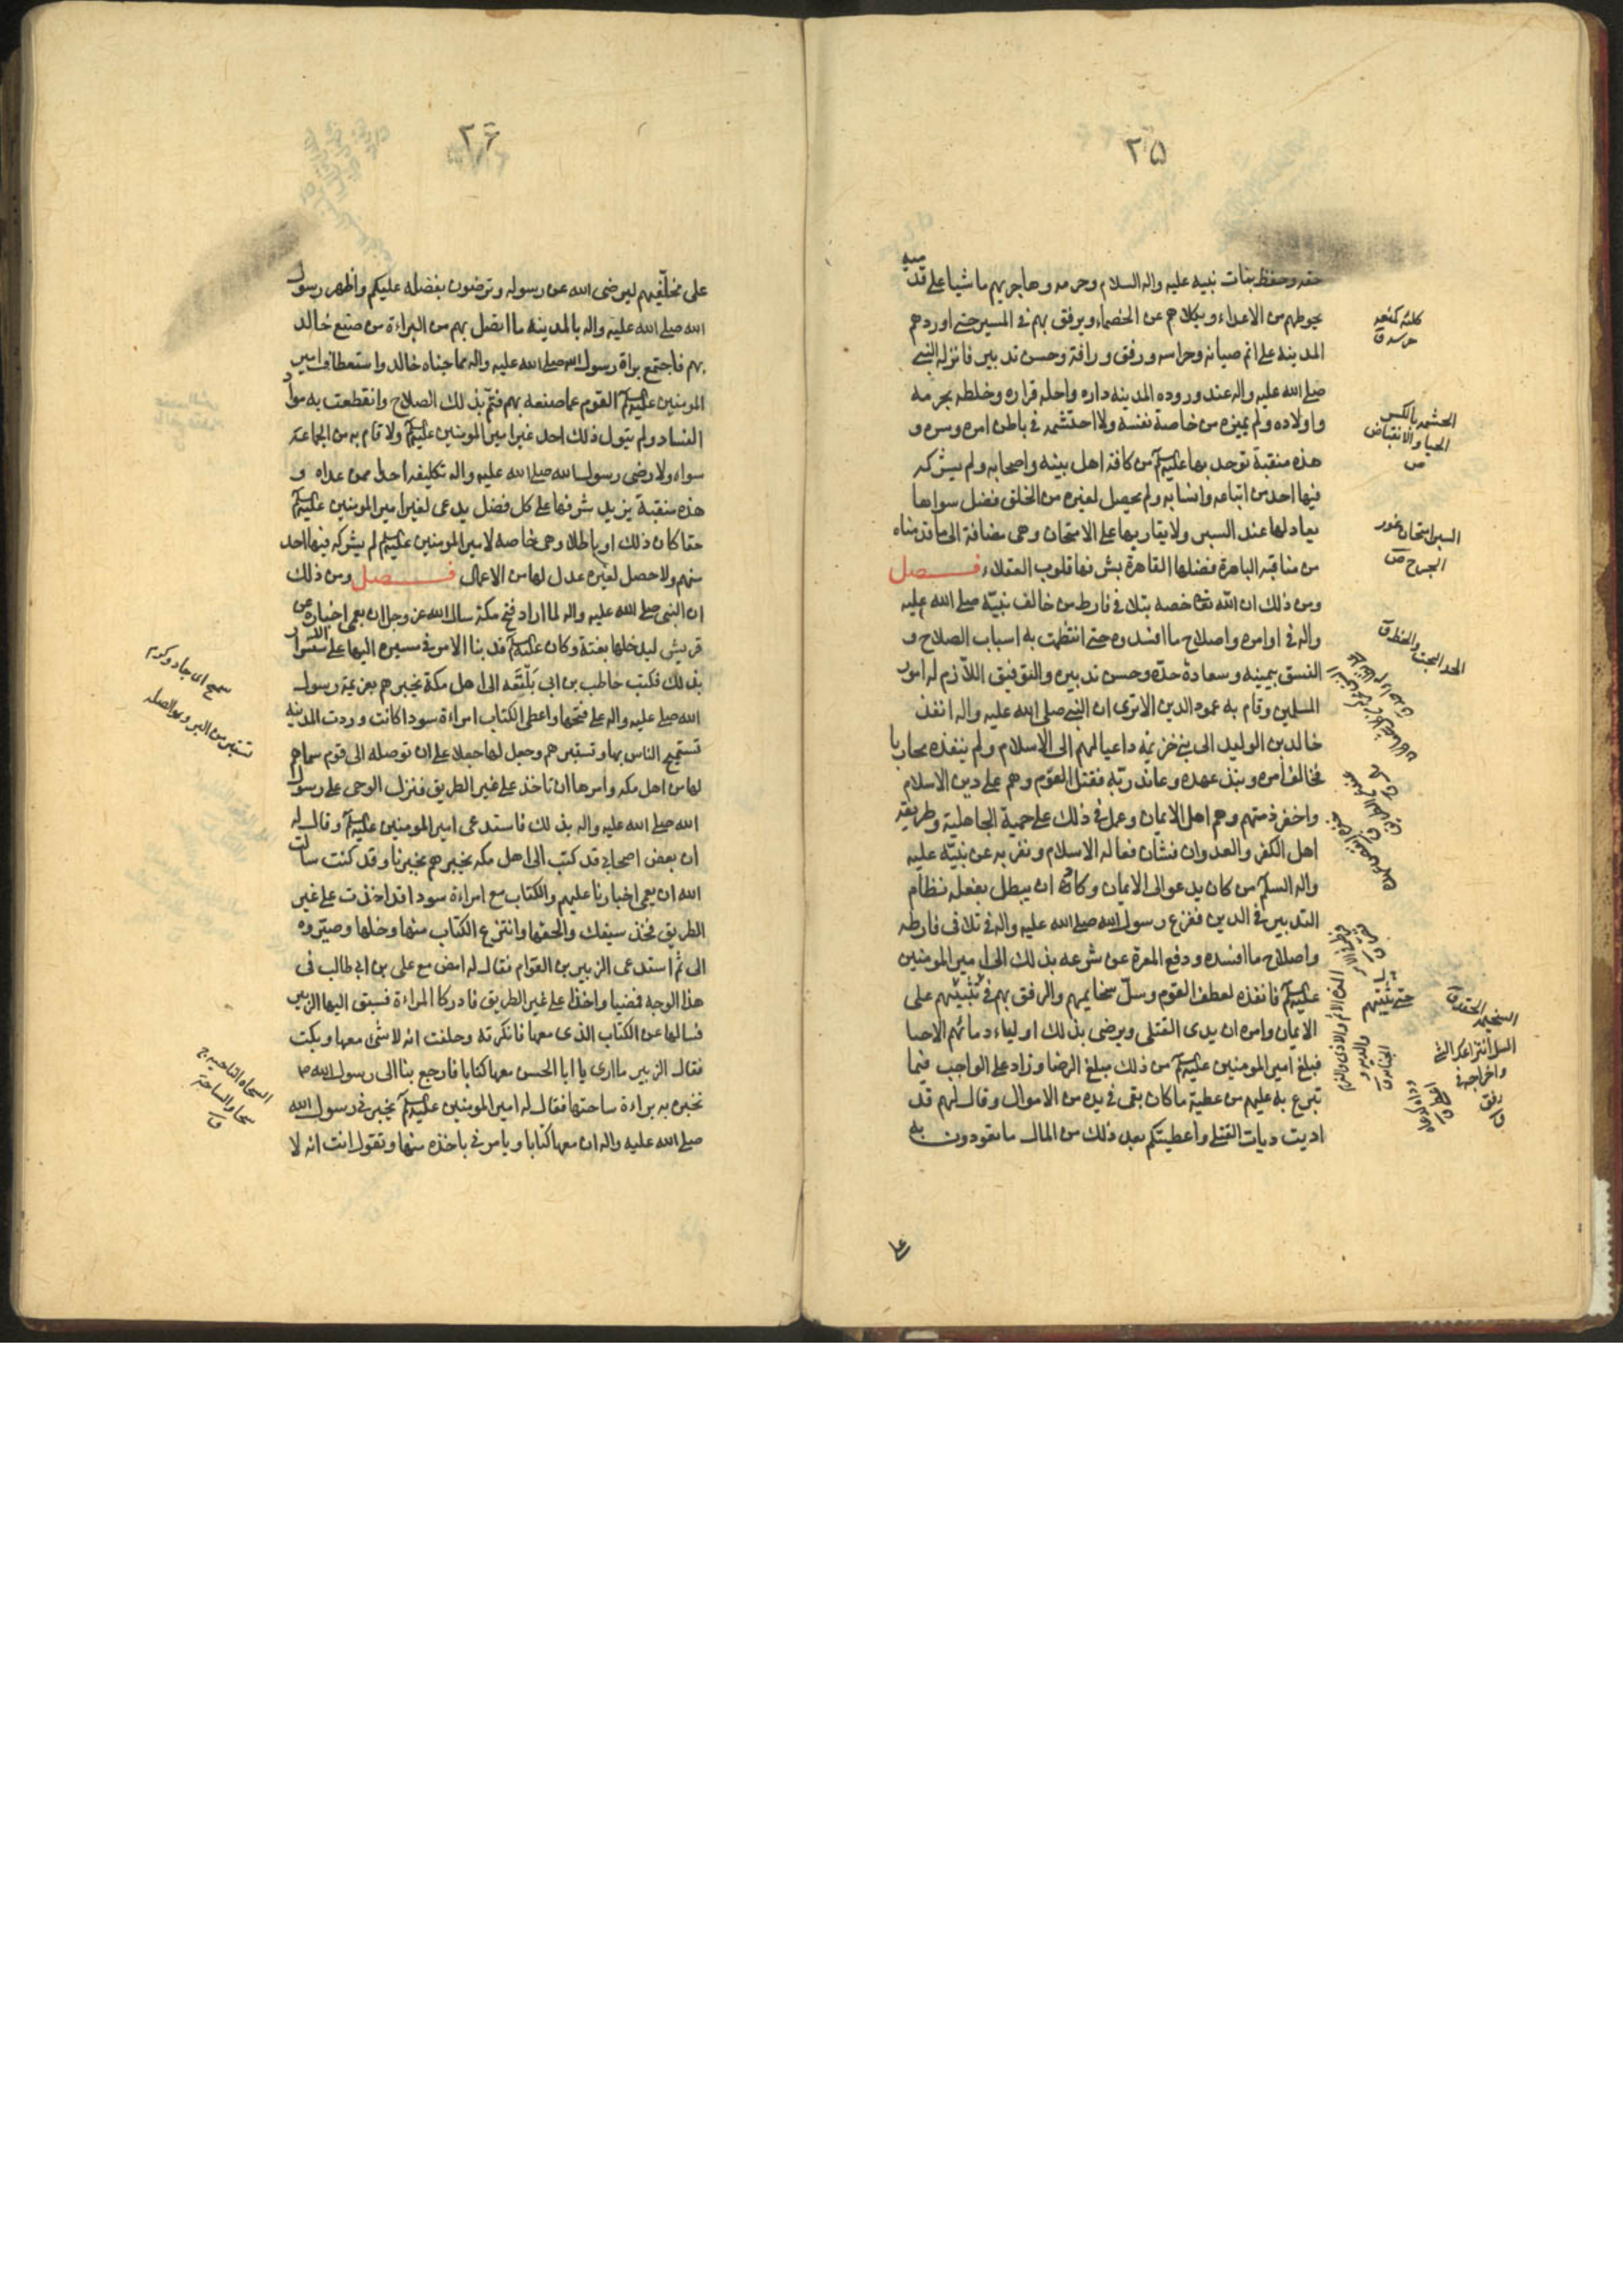 ٢٥
حقه وحفظ بنات نبيه عليه واله السلام وحرمه وهاجر بهم ماشيا على قدميه
يحوطهم من الاعداء ويكلاهم عن الخصماء ويرفق بهم في المسير حتى اوردهم
المدينه على اتم صيانه وحراسه ورفق ورافة وحسن تدبير فانزله النبي
صلى الله عليه واله عند وروده المدينه داره واحله قراره وخلطه بحرمه
واولاده ولم يميزه من خاصة نفسه ولا احتشمه في باطن امره وسره و
هذه منقبة توحد بها عليه السلم من كافة اهل بيته واصحابه ولم يشركه
فيها احد من اتباعه واشياعه ولم يحصل لغيره من الخلق فضل سواها
يعادلها عند السبر ولا يقاربها على الامتحان وهي مضافة الى ما قدمناه
من مناقبه الباهرة فضلها القاهرة بشرفها قلوب العقلاء فصل
ومن ذلك ان الله تعالى خصه بتلافي فارط من خالف نبيّه صلى الله عليه
واله في اوامره واصلاح ما افسدوه حتى انتظمت به اسباب الصلاح و
اتسق بيمينه وسعادة جدّه وحسن تدبيره والتوفيق اللازم له امور
المسلمين وقام به عمود الدين الا ترى ان النبي صلى الله عليه واله انفذ
خالد بن الوليد الى بني خزيمة داعيا لهم الى الاسلام ولم ينفذه محاربا
فخالف امره ونبذ عهده وعاند ربّه فقتل القوم وهم على دين الاسلام
واخفر ذمتهم وهم اهل الايمان وعمل في ذلك على حمية الجاهلية وطريقة
اهل الكفر والعدوان فشان فعاله الاسلام ونفر به عن نبيّه عليه
واله السلم من كان يدعو الى الايمان وكاد ان يبطل بفعله نظام
التدبير في الدين ففزع رسول الله صلى الله عليه واله في تلافي فارطه
واصلاح ما افسده ودفع المعرة عن شرعه بذلك الى امير المومنين
عليه السلم فانفذه لعطف القوم وسلّ سخايمهم والرفق بهم في تثبيتهم على
الايمان وامره ان يدى القتلى ويرضى بذلك اولياء دمائهم الاحيا
فبلغ امير المومنين عليه السلم من ذلك مبلغ الرضا وزاد على الواجب فيما
تبرع به عليهم من عطية ما كان بقى في يده من الاموال وقال لهم قد
اديت ديات القتلى واعطيتكم بعد ذلك من المال ما تعودون به
على
الحشمة بالكسر
الحيا والانقباض
ص
السبر امتحان غور
الجرح ص
الجد البخت والحظ ق
حتى يثبتهم
السخيمة الحقد ق
السل انتزاعك الشئ
واخراجه في
رفق
ق
٢٦
على مخلّفيهم ليرضى الله عن رسوله وترضون بفضله عليكم واظهر رسول
الله صلى الله عليه واله بالمدينه ما اتصل بهم من البراءة من صنيع خالد
بهم فاجتمع براة رسول الله صلى الله عليه واله مما جناه خالد واستعطاف امير
المومنين عليه السلم القوم عما صنعه بهم فتمّ بذلك الصلاح وانقطعت به مواد
الفساد ولم يتول ذلك احد غير امير المومنين عليه السلم ولا قام به من الجماعة
سواه ولا رضى رسول الله صلى الله عليه واله تكليفه احدا ممن عداه و
هذه منقبة يزيد شرفها على كل فضل يدعى لغير امير المومنين عليه السلم
حقا كان ذلك او باطلا وهي خاصه لامير المومنين عليه السلم لم يشركه فيها احد
منهم ولا حصل لغيره عدل لها من الاعمال فصل ومن ذلك
ان النبي صلى الله عليه واله لما اراد فتح مكة سال الله عز وجل ان يعمى اخباره عن
قريش ليدخلها بغتة وكان عليه السلم قد بنا الامر في مسيره اليها على الاستسرار
بذلك فكتب حاطب بن ابى بَلْتَعَه الى اهل مكة يخبرهم بعزيمة رسول
الله صلى عليه واله على فتحها واعطى الكتاب امراءة سودا كانت وردت المدينه
تستميح الناس بها وتستبرهم وجعل لها جعلا على ان توصله الى قوم سماهم
لها من اهل مكه وامرها ان تاخذ على غير الطريق فنزل الوحى على رسول
الله صلى الله عليه واله بذلك فاستدعى امير المومنين عليه السلم وقال له
ان بعض اصحابى قد كتب الى اهل مكه يخبرهم بخبرنا وقد كنت سالت
الله ان يعمى اخبارنا عليهم والكتاب مع امراءة سودا قد اخذت على غير
الطريق فخذ سيفك والحقها وانتزع الكتاب منها وخلها وصيّر به
الى ثم استدعى الزبير بن العوّام فقال له امض مع على بن ابى طالب فى
هذا الوجه فمضيا واخذا على غير الطريق فادركا المراءة فسبق اليها الزبير
فسالها عن الكتاب الذى معها فانكرته وحلفت انه لا شئ معها وبكت
فقال الزبير ما ارى يا ابا الحسن معها كتابا فارجع بنا الى رسول الله ص
نخبره ببراءة ساحتها فقال له امير المومنين عليه السلم يخبرنى رسول الله
صلى الله عليه واله ان معها كتابا ويامرنى باخذه منها وتقول انت انه لا
سمح اى جاد وكرم
تستبر من البر وهو الصله